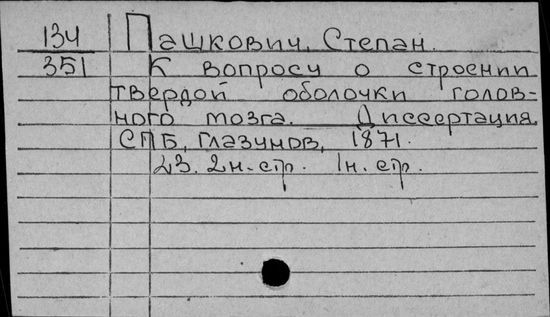 134 Пашкович, Степан.
351 К вопросу о строении
твердой оболочки голов-
ного мозга. Диссертация.
СПБ, Глазунов, 1871.
23. 2н. стр. 1н. стр.